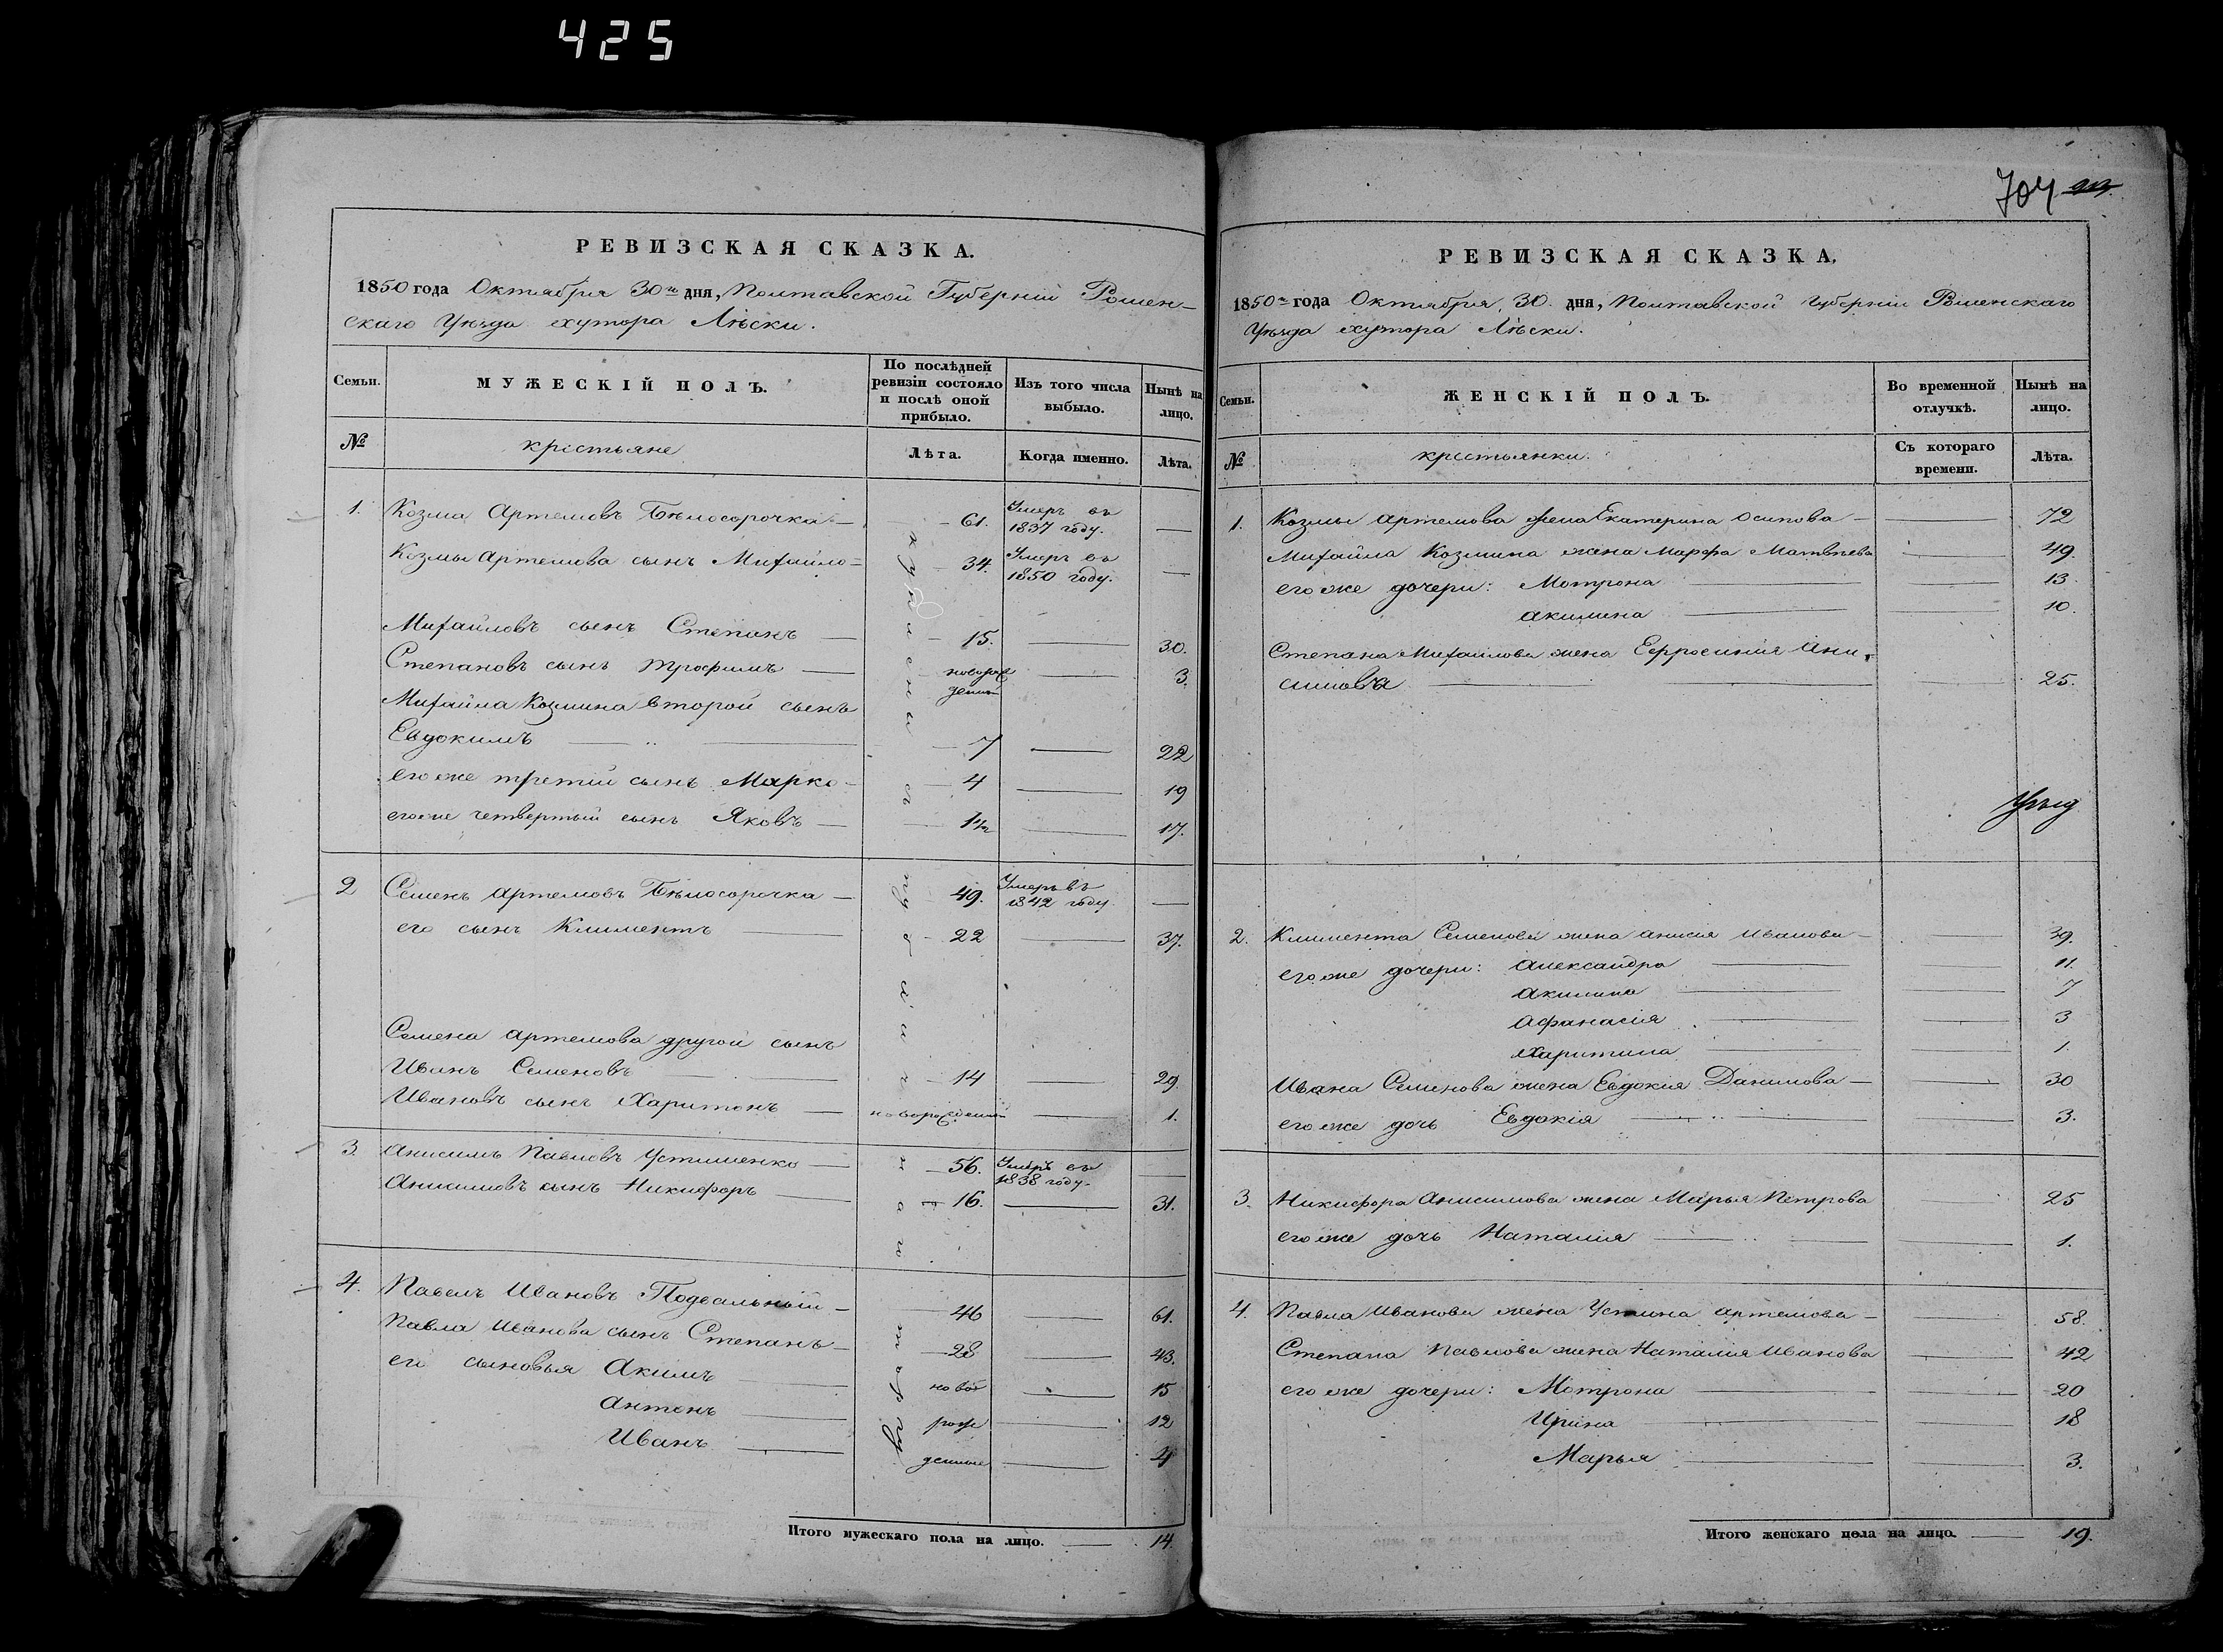 425
704
РЕВИЗСКАЯ СКАЗКА.
1850 года Октября 30го дня, Полтавской Губерніи Ромен-
скаго Уѣзда хутора Лѣски.
Семьи.
МУЖЕСКІЙ ПОЛЪ.
По послѣдней ревизіи состояло и послѣ оной прибыло.
Изъ того числа выбыло.
Нынѣ на лицо.
№
крестьяне
Лѣта.
Когда именно.
Лѣта.
1. Козма Артемовъ Бѣлосорочка — 61. Умеръ въ 1837 году. —
Козмы Артемова сынъ Михайло — 34. Умеръ въ 1850 году. —
Михайловъ сынъ Степанъ — 15. — 30.
Степановъ сынъ Трофимъ — новорожденный — 3.
Михайла Козмина второй сынъ
Евдокимъ — 7 — 22
его же третій сынъ Марко — 4 — 19
его же четвертый сынъ Яковъ — 1½ — 17.
2 Семенъ Артемовъ Бѣлосорочка — 49. Умеръ въ 1842 году. —
его сынъ Климентъ — 22 — 37.
Семена Артемова другой сынъ
Иванъ Семеновъ — 14 — 29.
Ивановъ сынъ Харитонъ — новорожденный — 1.
3. Анисимъ Павловъ Устименко — 56. Умеръ въ 1838 году. —
Анисимовъ сынъ Никифоръ — 16. — 31.
4. Павелъ Ивановъ Подвальный — 46 — 61.
Павла Иванова сынъ Степанъ — 28 — 43.
его сыновья Акимъ — ново — 15
Антонъ — рож — 12
Иванъ — денные — 4
Итого мужескаго пола на лицо. — 14.
РЕВИЗСКАЯ СКАЗКА.
1850го года Октября, 30. дня, Полтавской Губерніи Роменскаго
Уѣзда хутора Лѣски.
Семьи.
ЖЕНСКІЙ ПОЛЪ.
Во временной отлучкѣ.
Нынѣ на лицо.
№
крестьянки.
Съ котораго времени.
Лѣта.
1. Козмы Артемова жена Екатерина Осипова — 72
Михайла Козмина жена Марфа Матвѣева — 49.
его же дочери: Мотрона — 13.
Акилина — 10.
Степана Михайлова жена Ефросинія Ани-
симова — 25.
2. Климента Семенова жена Анисія Иванова — 39.
его же дочери: Александра — 11.
Акилина — 7
Афанасія — 3
Харитина — 1.
Ивана Семенова жена Евдокія Данилова — 30
его же дочь Евдокія — 3.
3. Никифора Анисимова жена Марья Петрова — 25
его же дочь Наталия — 1.
4. Павла Иванова жена Устина Артемова — 58.
Степана Павлова жена Наталия Иванова — 42
его же дочери: Мотрона — 20
Ирина — 18
Марья — 3.
Итого женскаго пола на лицо. — 19.